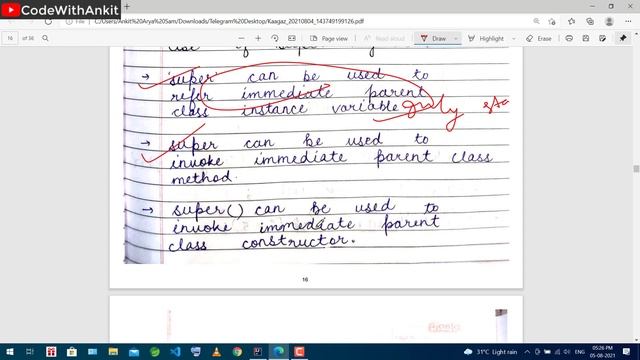 CodeWithAnkit
C:/Users/Ankit%20Arya%20Sam/Downloads/Telegram%20Desktop/Kaagaz_20210804_143749199126.pdf
16 of 36
Read aloud
Draw
Highlight
Erase
→ super can be used to
refer immediate parent
class instance variable only sta
→ super can be used to
invoke immediate parent class
method.
→ super() can be used to
invoke immediate parent
class constructor.
16
31°C Light rain
ENG
05:26 PM
05-08-2021